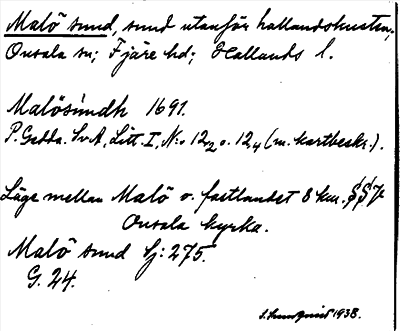 Malö sund, sund utanför hallandskusten,
Onsala sn; Fjäre hd; Hallands l.
Malösundh 1691.
P. Gedda. Sv. A, Litt. I, N:o 12₂ o. 12₄ (m. kartbeskr.).
Läge mellan Malö o. fastlandet 8 km. §§V
Onsala kyrka.
Malö sund Sj: 275.
G. 24.
S. Sundqvist 1938.